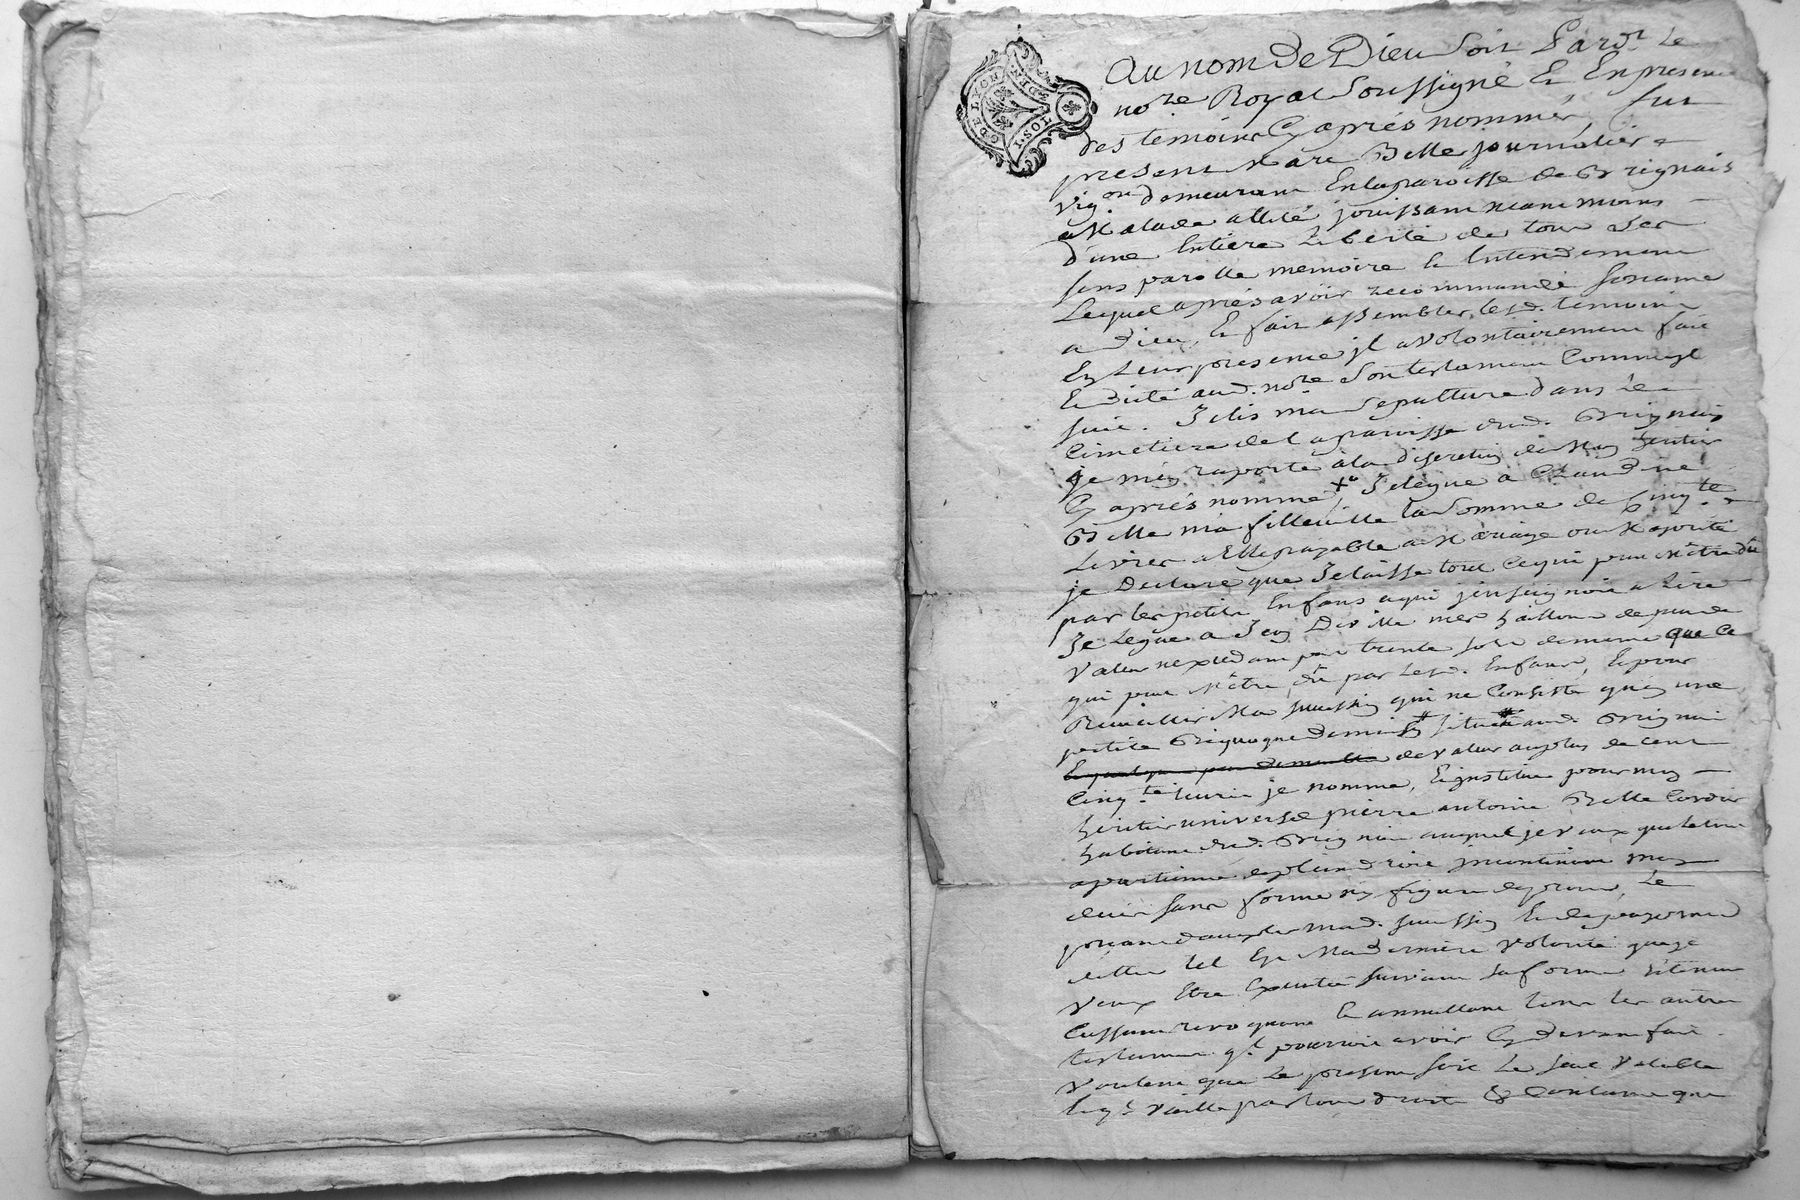 G. DE LYON
1. SOL
8. DEN
Au nom De Dieu soit Pardt Le
nore Royal Soussigné & En presence
des temoins Cy aprés nommés, fut
present Marc Belle journalier &
vigon demeurant En la paroisse de Brignais
Malade allité jouissant neanmoins
d'une Entiere Liberté de tous ses
sens parolle memoire & Entendement
Lequel aprés avoir recommandé son ame
a Dieu, & fait assembler lesd. temoins
En Leur presence jl a volontairement fait
& dicté aud. nore son testament Comme jl
suit. J'elis ma sepulture dans Le
Cimetiere de la paroisse dud. Brignais
je m'en raporte a la discretion de Mon heritier
Cy aprés nommé, Je legue a Claudine
Belle ma filleulle la somme de Cinqte
Livres a Elle payable a Mariage ou Majorité
je Declare que Je laisse tout Ce qui peut M'être dû
par les petits Enfans a qui j'enseignois a Lire
Je Legue a Jean mes haillons de peu de
valeur n'exedant pas trente sols de meme que Ce
qui peut M'être dû par Lesd. Enfans, & pour
Recueillir Ma succession qui ne Consiste qu'en une
petite situé aud. Brignais
de valeur au plus de Cent
Cinqte Livres je nomme, & institue pour mon
heritier universel pierre antoine Belle Cordier
habitant dud. Brignais auquel je veux que le tout
apartienne de plein droit jncontinent mon
decés sans forme ny figure de procés, Le
de Mad. succession & de
telle Est Ma Derniere volonté que je
veux Etre Executée suivant sa forme & teneur
Cassant revoquant & annullant tous les autres
testamens qu'il pourroit avoir Cy devant fait
voulant que Le present soit Le seul valable
& qu'il vaille par tout droit & Coutume que